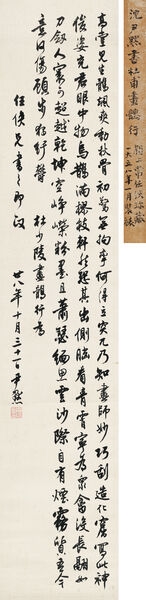 沈尹默書杜甫畫鶻行
一九五八年一月裝裱
高堂見生鶻颯爽動秋骨初驚無拘攣何得立突兀乃知畫師妙巧刮造化窟寫此神
俊姿充君眼中物烏鵲滿樛枝軒然恐其出側腦看青霄寧為眾禽沒長翮如
刀劍人寰可超越乾坤空崢嶸粉墨且蕭瑟緬思雲沙際自有煙霧質吾今
意何傷顧步獨紆鬱 杜少陵畫鶻行
任俠兄書之即政
廿八年十月三十一日 尹默